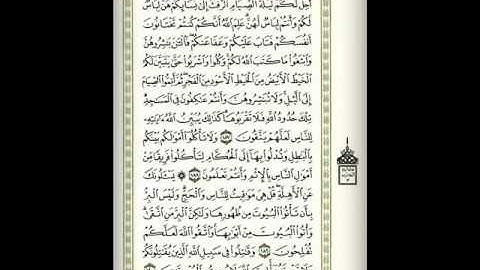 أُحِلَّ لَكُمْ لَيْلَةَ ٱلصِّيَامِ ٱلرَّفَثُ إِلَىٰ نِسَآئِكُمْ هُنَّ لِبَاسٌ
لَّكُمْ وَأَنتُمْ لِبَاسٌ لَّهُنَّ عَلِمَ ٱللَّهُ أَنَّكُمْ كُنتُمْ تَخْتَانُونَ
أَنفُسَكُمْ فَتَابَ عَلَيْكُمْ وَعَفَا عَنكُمْ فَٱلْـَٰٔنَ بَٰشِرُوهُنَّ
وَٱبْتَغُوا۟ مَا كَتَبَ ٱللَّهُ لَكُمْ وَكُلُوا۟ وَٱشْرَبُوا۟ حَتَّىٰ يَتَبَيَّنَ لَكُمُ
ٱلْخَيْطُ ٱلْأَبْيَضُ مِنَ ٱلْخَيْطِ ٱلْأَسْوَدِ مِنَ ٱلْفَجْرِ ثُمَّ أَتِمُّوا۟ ٱلصِّيَامَ
إِلَى ٱلَّيْلِ وَلَا تُبَٰشِرُوهُنَّ وَأَنتُمْ عَٰكِفُونَ فِى ٱلْمَسَٰجِدِ
تِلْكَ حُدُودُ ٱللَّهِ فَلَا تَقْرَبُوهَا كَذَٰلِكَ يُبَيِّنُ ٱللَّهُ ءَايَٰتِهِۦ
لِلنَّاسِ لَعَلَّهُمْ يَتَّقُونَ ١٨٧ وَلَا تَأْكُلُوٓا۟ أَمْوَٰلَكُم بَيْنَكُم
بِٱلْبَٰطِلِ وَتُدْلُوا۟ بِهَآ إِلَى ٱلْحُكَّامِ لِتَأْكُلُوا۟ فَرِيقًا مِّنْ
أَمْوَٰلِ ٱلنَّاسِ بِٱلْإِثْمِ وَأَنتُمْ تَعْلَمُونَ ١٨٨ ۞ يَسْـَٔلُونَكَ
عَنِ ٱلْأَهِلَّةِ قُلْ هِىَ مَوَٰقِيتُ لِلنَّاسِ وَٱلْحَجِّ وَلَيْسَ ٱلْبِرُّ
بِأَن تَأْتُوا۟ ٱلْبُيُوتَ مِن ظُهُورِهَا وَلَٰكِنَّ ٱلْبِرَّ مَنِ ٱتَّقَىٰ
وَأْتُوا۟ ٱلْبُيُوتَ مِنْ أَبْوَٰبِهَا وَٱتَّقُوا۟ ٱللَّهَ لَعَلَّكُمْ
تُفْلِحُونَ ١٨٩ وَقَٰتِلُوا۟ فِى سَبِيلِ ٱللَّهِ ٱلَّذِينَ يُقَٰتِلُونَكُمْ